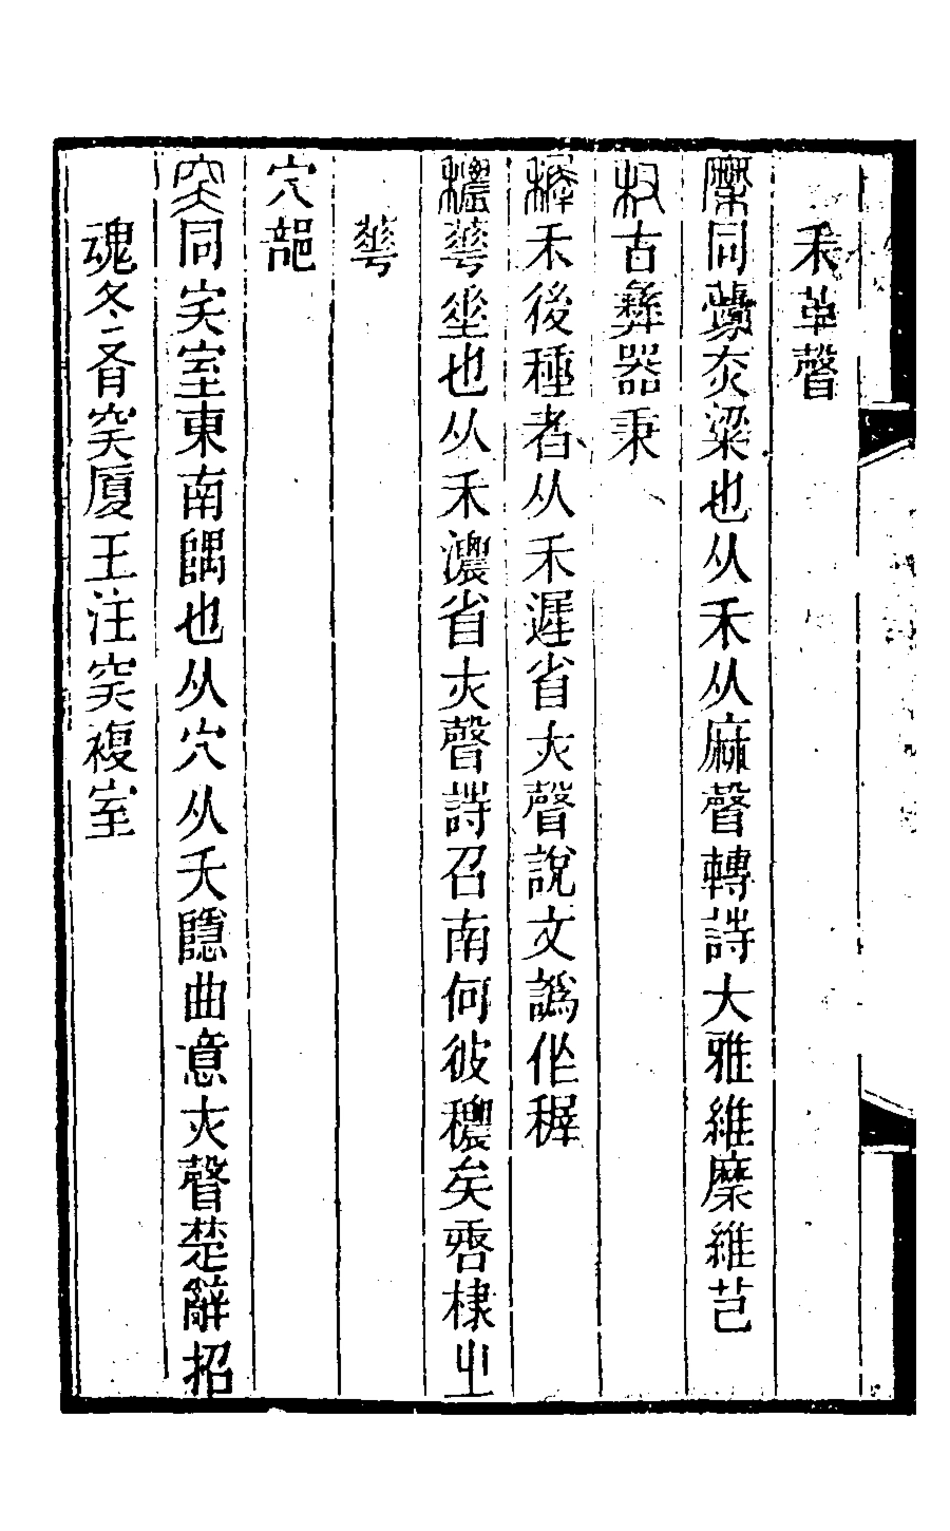 禾革聲
穈同虋灾粱也从禾从麻聲轉詩大雅維穈維芑
古彝器秉
稺禾後種者从禾遲省大聲說文譌作稺
穠蕐盛也从禾濃省大聲詩召南何彼穠矣唐棣㞢
蕐
穴部
窔同宎室東南隅也从穴从夭隱曲意大聲楚辭招
魂冬有窔厦王注窔複室